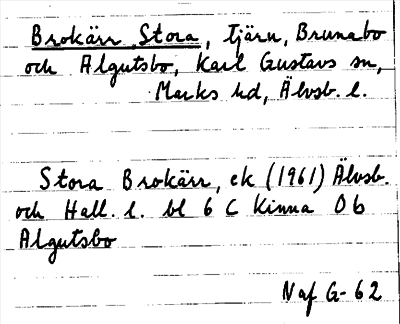 Brokärr, Stora, tjärn, Brunabo
och Algutsbo, Karl Gustavs sn,
Marks hd, Älvsb. l.
Stora Brokärr, ek (1961) Älvsb.
och Hall. l. bl 6 C Kinna Ob
Algutsbo
Naf G-62